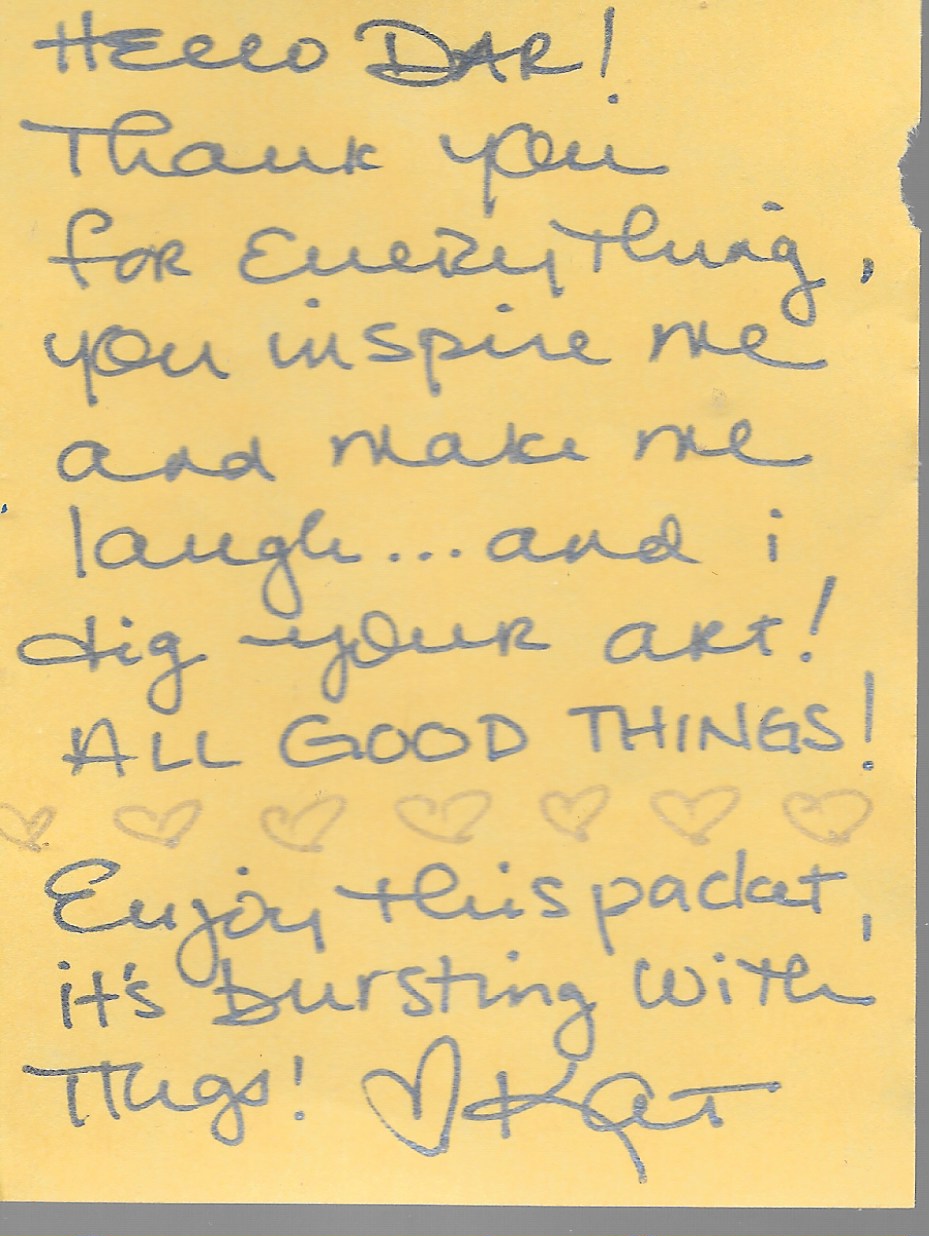 Hello DAR!
Thank you
for Everything,
you inspire me
and make me
laugh... and i
dig your art!
ALL GOOD THINGS!
Enjoy this packet,
it's bursting with
Hugs! ♡ Kat